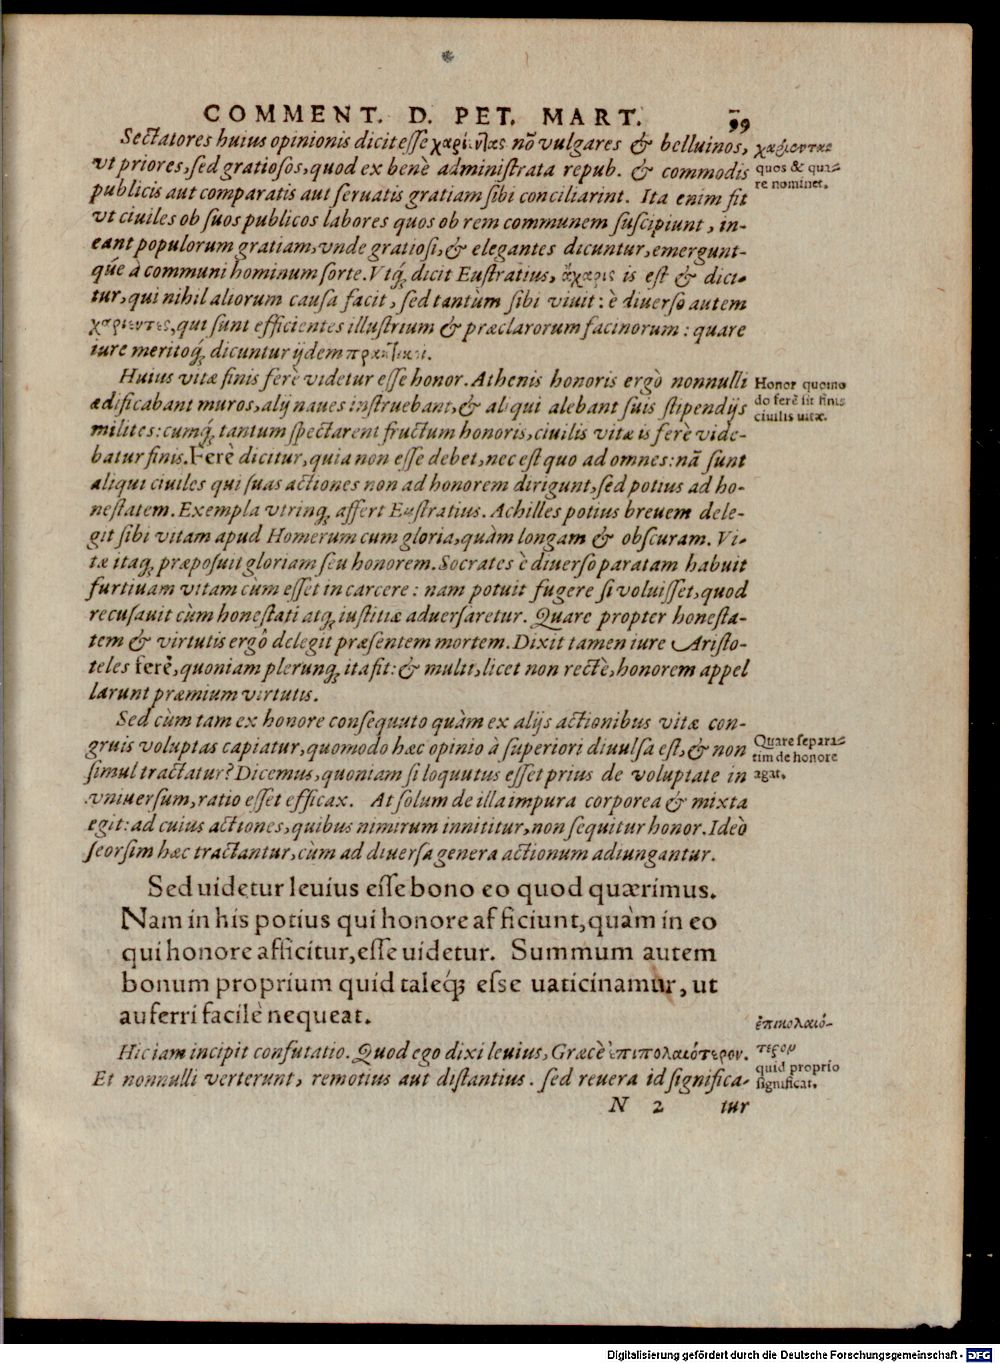 COMMENT. D. PET. MART. 99
Sectatores huius opinionis dicit esse χαρίεντας nõ vulgares & belluinos,
vt priores, sed gratiosos, quod ex benè administrata repub. & commodis
publicis aut comparatis aut seruatis gratiam sibi conciliarint. Ita enim fit
vt ciuiles ob suos publicos labores quos ob rem communem suscipiunt, in-
eant populorum gratiam, vnde gratiosi, & elegantes dicuntur, emergunt-
qúe à communi hominum sorte. Vtq́; dicit Eustratius, ἄχαρις is est & dici-
tur, qui nihil aliorum causa facit, sed tantùm sibi viuit: è diuerso autem
χαρίεντες, qui sunt efficientes illustrium & præclarorum facinorum: quare
iure meritoq́; dicuntur ijdem πρακτικοί.
χαρίεντας
quos & qua-
re nominet.
Huius vitæ finis ferè videtur esse honor. Athenis honoris ergò nonnulli
ædificabant muros, alij naues instruebant, & aliqui alebant suis stipendijs
milites: cumq́; tantum spectarent fructum honoris, ciuilis vitæ is ferè vide-
batur finis. Ferè dicitur, quia non esse debet, nec est quo ad omnes: nã sunt
aliqui ciuiles qui suas actiones non ad honorem dirigunt, sed potius ad ho-
nestatem. Exempla vtrinq; affert Eustratius. Achilles potius breuem dele-
git sibi vitam apud Homerum cum gloria, quàm longam & obscuram. Vi-
tæ itaq; præposuit gloriam seu honorem. Socrates è diuerso paratam habuit
furtiuam vitam cùm esset in carcere: nam potuit fugere si voluisset, quod
recusauit cùm honestati atq; iustitiæ aduersaretur. Quare propter honesta-
tem & virtutis ergô delegit præsentem mortem. Dixit tamen iure Aristo-
teles ferè, quoniam plerunq; ita fit: & multi, licet non rectè, honorem appel
larunt præmium virtutis.
Honor quomo
do ferè sit finis
ciuilis uitæ.
Sed cùm tam ex honore consequuto quàm ex alijs actionibus vitæ con-
gruis voluptas capiatur, quomodo hæc opinio à superiori diuulsa est, & non
simul tractatur? Dicemus, quoniam si loquutus esset prius de voluptate in
vniuersum, ratio esset efficax. At solum de illa impura corporea & mixta
egit: ad cuius actiones, quibus nimirum innititur, non sequitur honor. Ideò
seorsim hæc tractantur, cùm ad diuersa genera actionum adiungantur.
Quare separa-
tim de honore
agat.
Sed uidetur leuius esse bono eo quod quærimus.
Nam in his potius qui honore afficiunt, quàm in eo
qui honore afficitur, esse uidetur. Summum autem
bonum proprium quid taleq́; esse uaticinamur, ut
auferri facilè nequeat.
Hic iam incipit confutatio. Quod ego dixi leuius, Græcè ἐπιπολαιότερον.
Et nonnulli verterunt, remotius aut distantius. sed reuera id significa-
ἐπιπολαιό-
τερον
quid proprio
significat.
N 2 tur
Digitalisierung gefördert durch die Deutsche Forschungsgemeinschaft - DFG